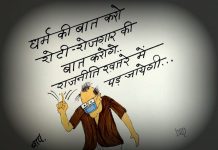 धर्म की बात करो
रोटी-रोजगार की
बात करोगे.
राजनीति खतरे में
पड़ जायेगी...